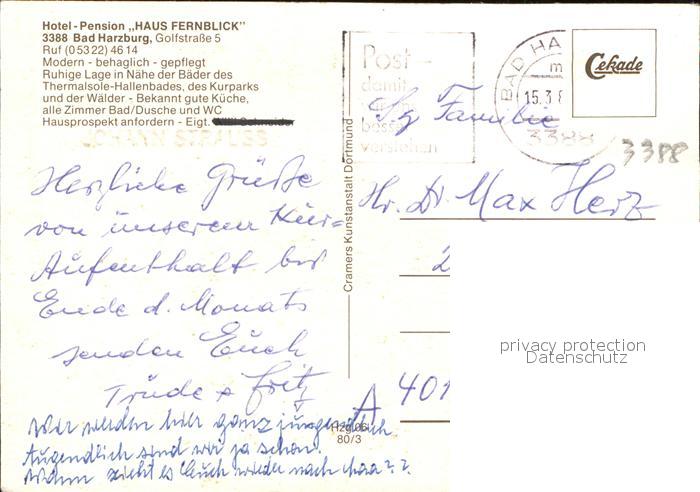 Hotel-Pension „HAUS FERNBLICK"
3388 Bad Harzburg, Golfstraße 5
Ruf (0 53 22) 46 14
Modern - behaglich - gepflegt
Ruhige Lage in Nähe der Bäder des
Thermalsole-Hallenbades, des Kurparks
und der Wälder - Bekannt gute Küche,
alle Zimmer Bad/Dusche und WC
Hausprospekt anfordern - Eigt.
JOHANN STRAUSS
Herzliche Grüße
von unserem Kur=
Aufenthalt bis
Ende d. Monats
senden Euch
Trude + Fritz
Wir werden hier ganz jugendlich
Augendlich sind wir ja schon.
Wann zieht es Euch wieder nach ? ?
Cramers Kunstanstalt Dortmund
80/3
Post-
damit
besser
verstehen
BAD HA
15.3.8
3388
Cekade
3388
Sg Familie
Hr. Dr Max Herz
2
A 401
privacy protection
Datenschutz